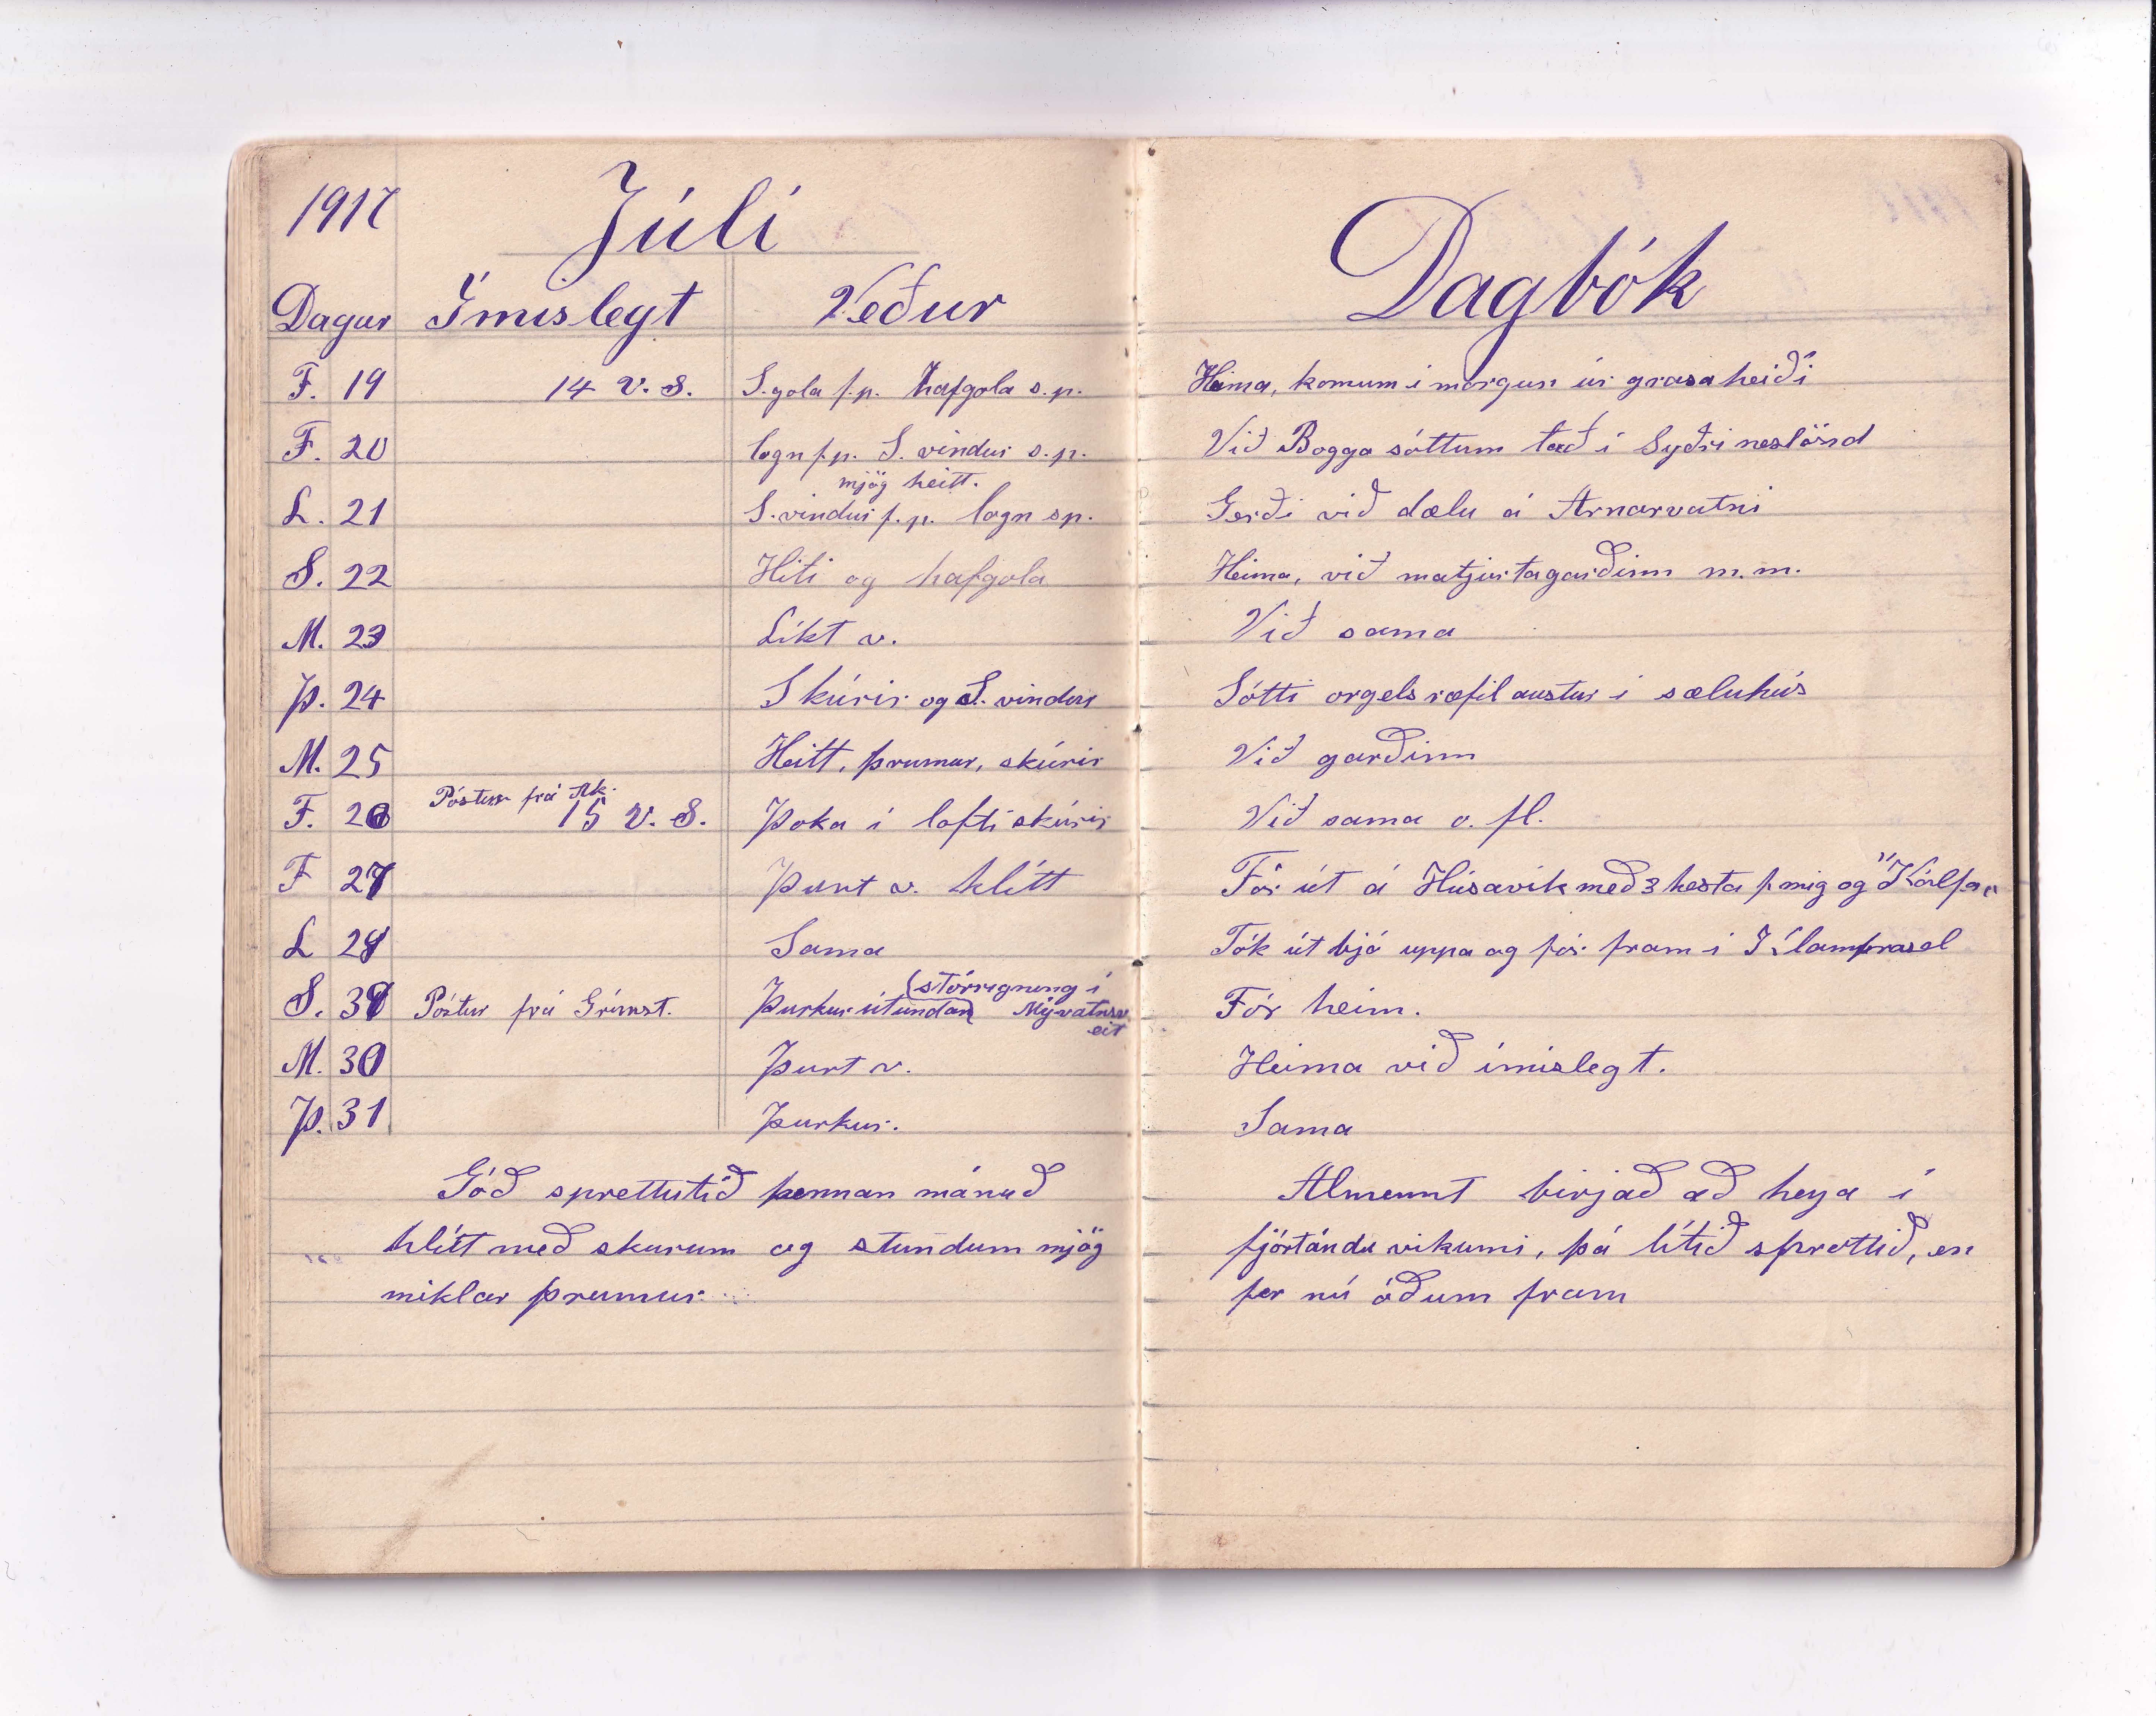 1917 Júlí
Dagur Ímislegt Veður
F. 19 14 V. S. S.gola f.p. hafgola s.p.
F. 20 logn f.p. S. vindur s.p.
mjög heitt.
L. 21 S.vindur f.p. logn sp.
S. 22 Hiti og hafgola
M. 23 Líkt v.
Þ. 24 Skúrir og S. vindur
M. 25 Heitt, þrumur, skúrir
Póstur frá Ak.
F. 26 15 V. S. Þoka í lofti skúrir
F 27 Þurt v. hlítt
L 28 Sama
(stórrigning í
S. Póstur frá Grímst. Þurkur útundan) Mývatnsv
eit
M. 30 Þurt v.
Þ. 31 Þurkur.
Góð sprettutið þennan mánuð
hlítt með skurum og stundum mjög
miklar þrumur.
Dagbók
Heima, komum í morgun úr grasaheiði
Við Bogga sóttum tað í Syðri neslönd
Gerði við dælu á Arnarvatni
Heima, við matjurtagarðinn m.m.
Við sama
Sótti orgels ræfil austur í sæluhús
Við garðinn
Við sama o. fl.
Fór út á Húsavík með 3 hesta f. mig og "Kálfa"
Tók út bjó uppa og fór fram í
Fór heim.
Heima við ímislegt.
Sama
Almennt birjað að heya í
fjórtándu vikunni, þá lítið sprottið, en
fer nú óðum fram